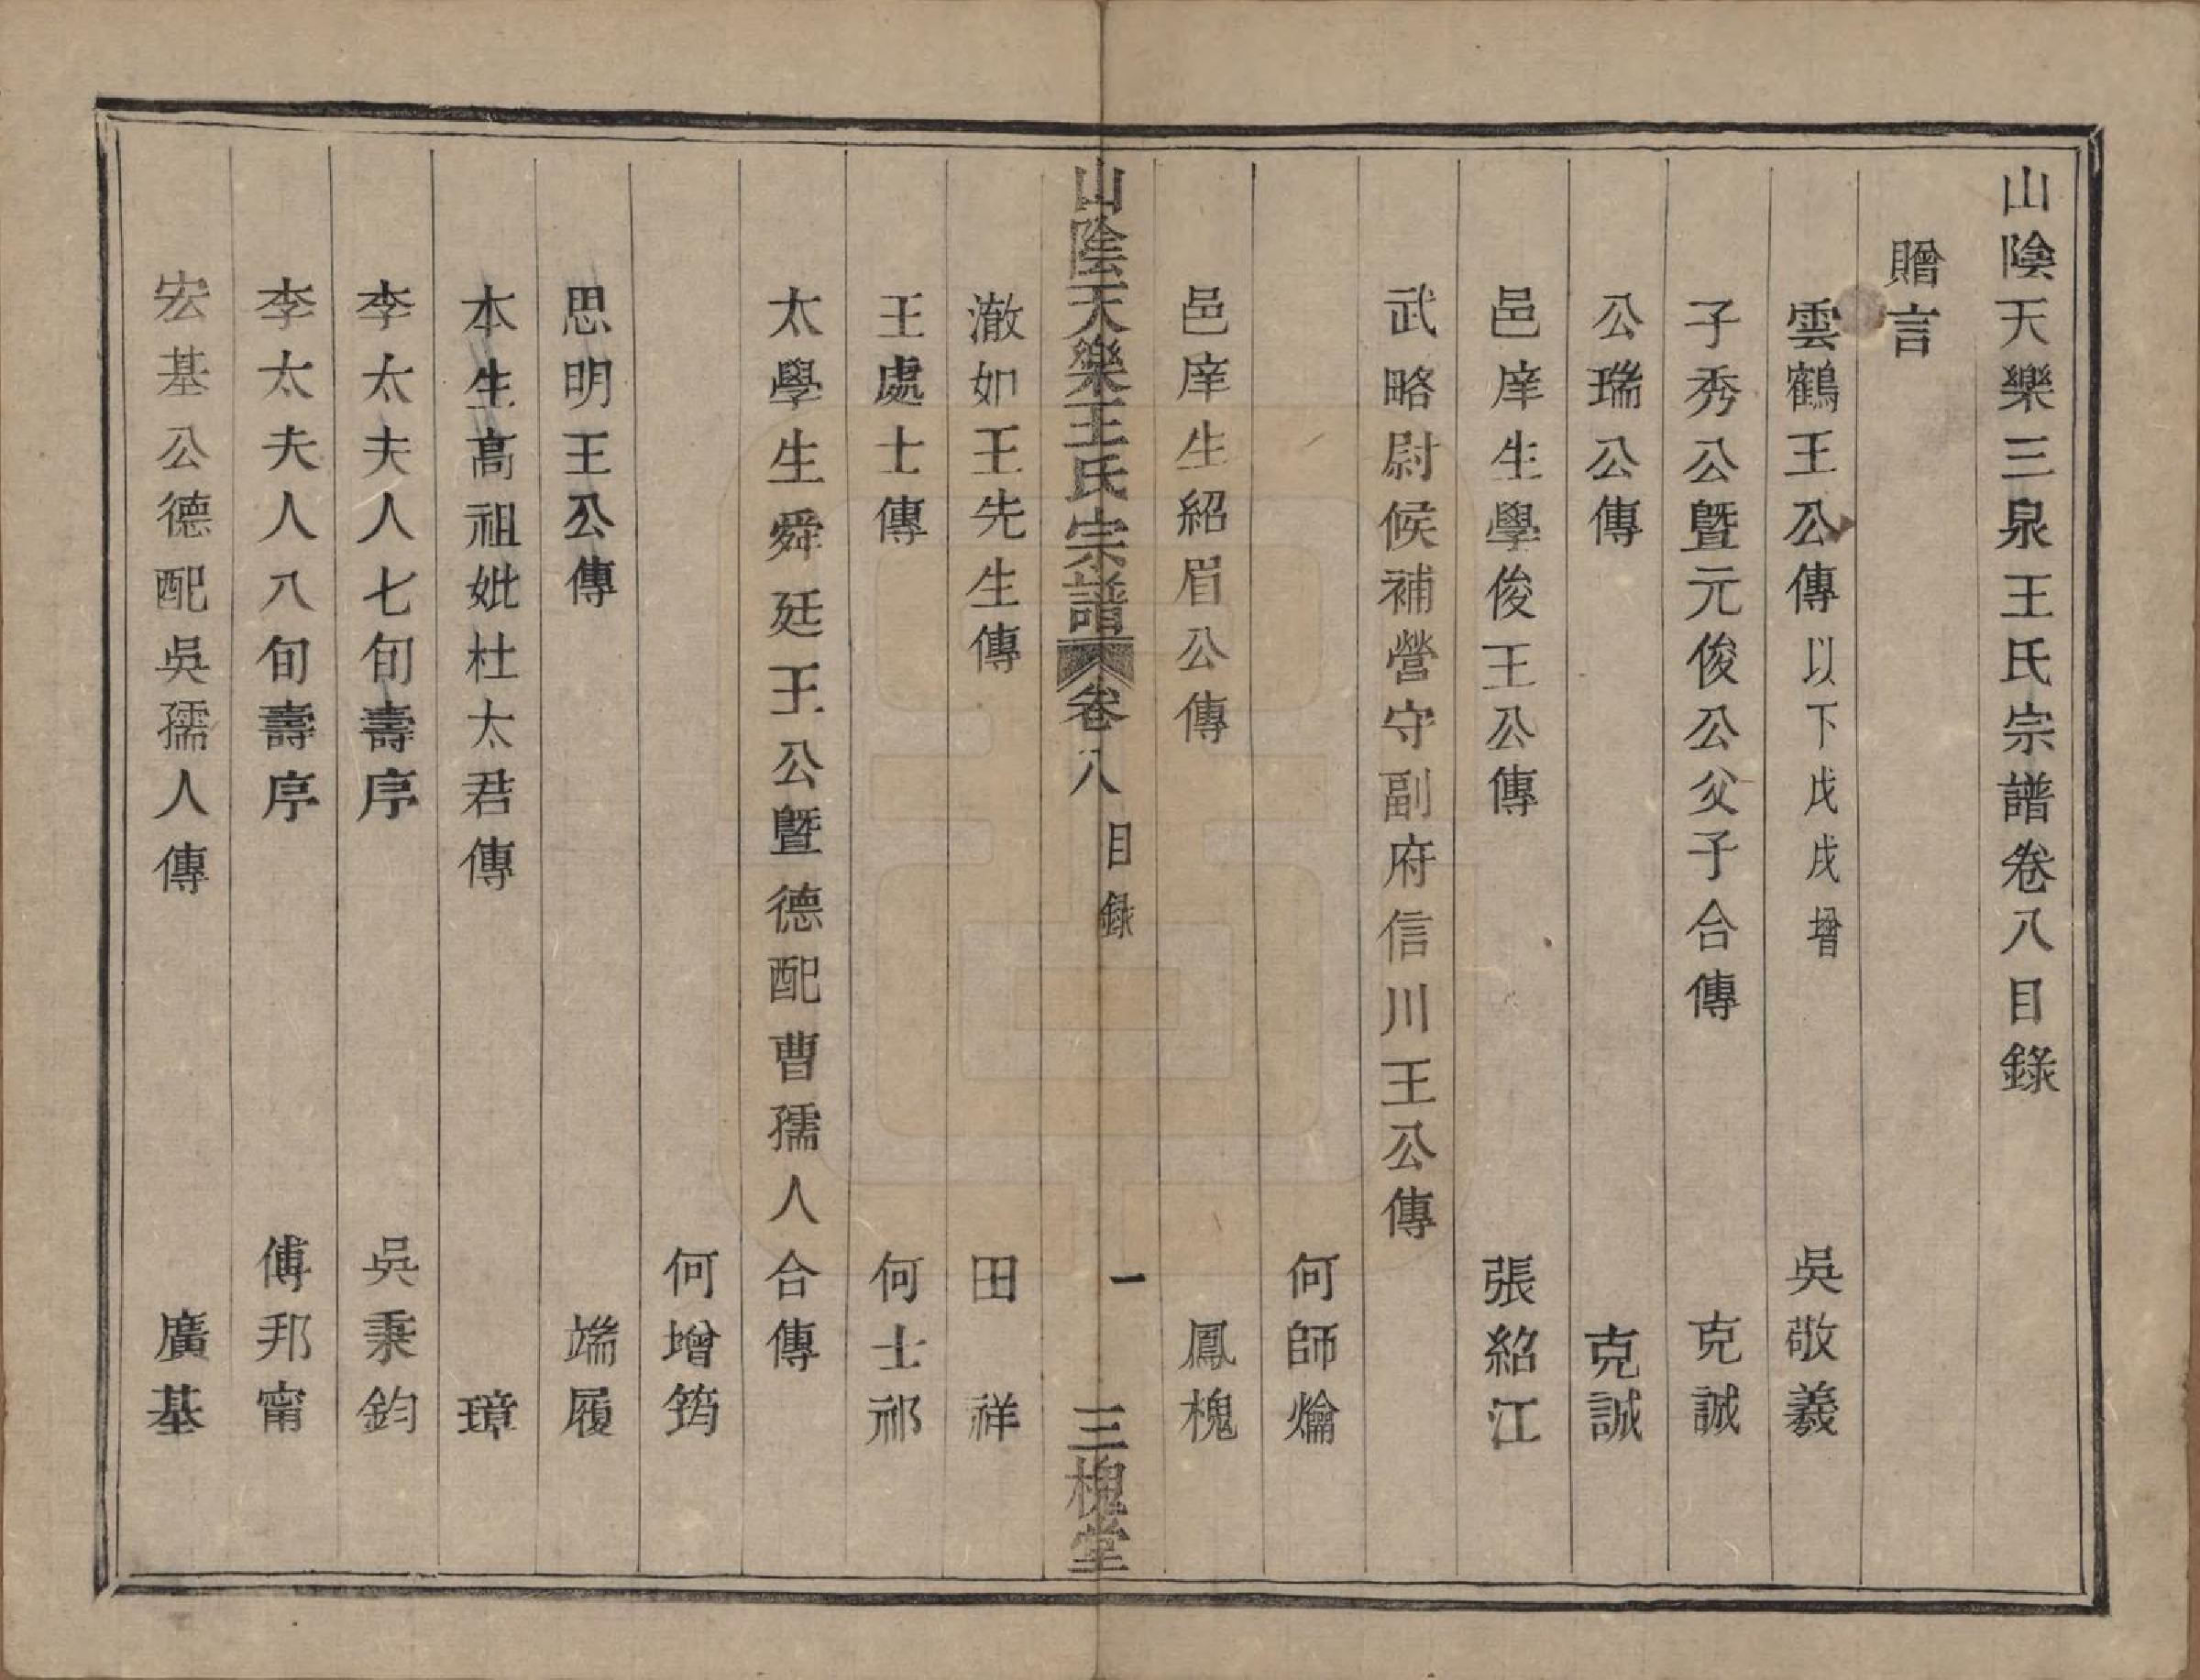 山陰天樂三泉王氏宗譜卷八目錄
贈言
雲鶴王公傳以下戊戌增 吳敬羲
子秀公曁元俊公父子合傳 克誠
公瑞公傳 克誠
邑庠生學俊王公傳 張紹江
武略尉候補營守副府信川王公傳
何師爚
邑庠生紹眉公傳 鳳槐
山陰天樂王氏宗譜 卷八 目錄 一 三槐堂
澈如王先生傳 田祥
王處士傳 何士祁
太學生舜廷王公曁德配曹孺人合傳
何增筠
思明王公傳 端履
本生高祖妣杜太君傳 璋
李太夫人七旬壽序 吳秉鈞
李太夫人八旬壽序 傅邦甯
宏基公德配吳孺人傳 廣基